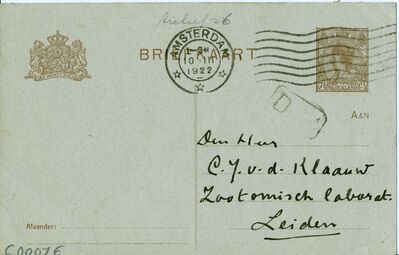 Archief 26
BRIEFKAART
AMSTERDAM
1-2N
10 III
1922
NEDERLAND
D
AAN
Den Heer
C. J. v. d. Klaauw
Zootomisch laborat.
Leiden
Afzender:
C00076